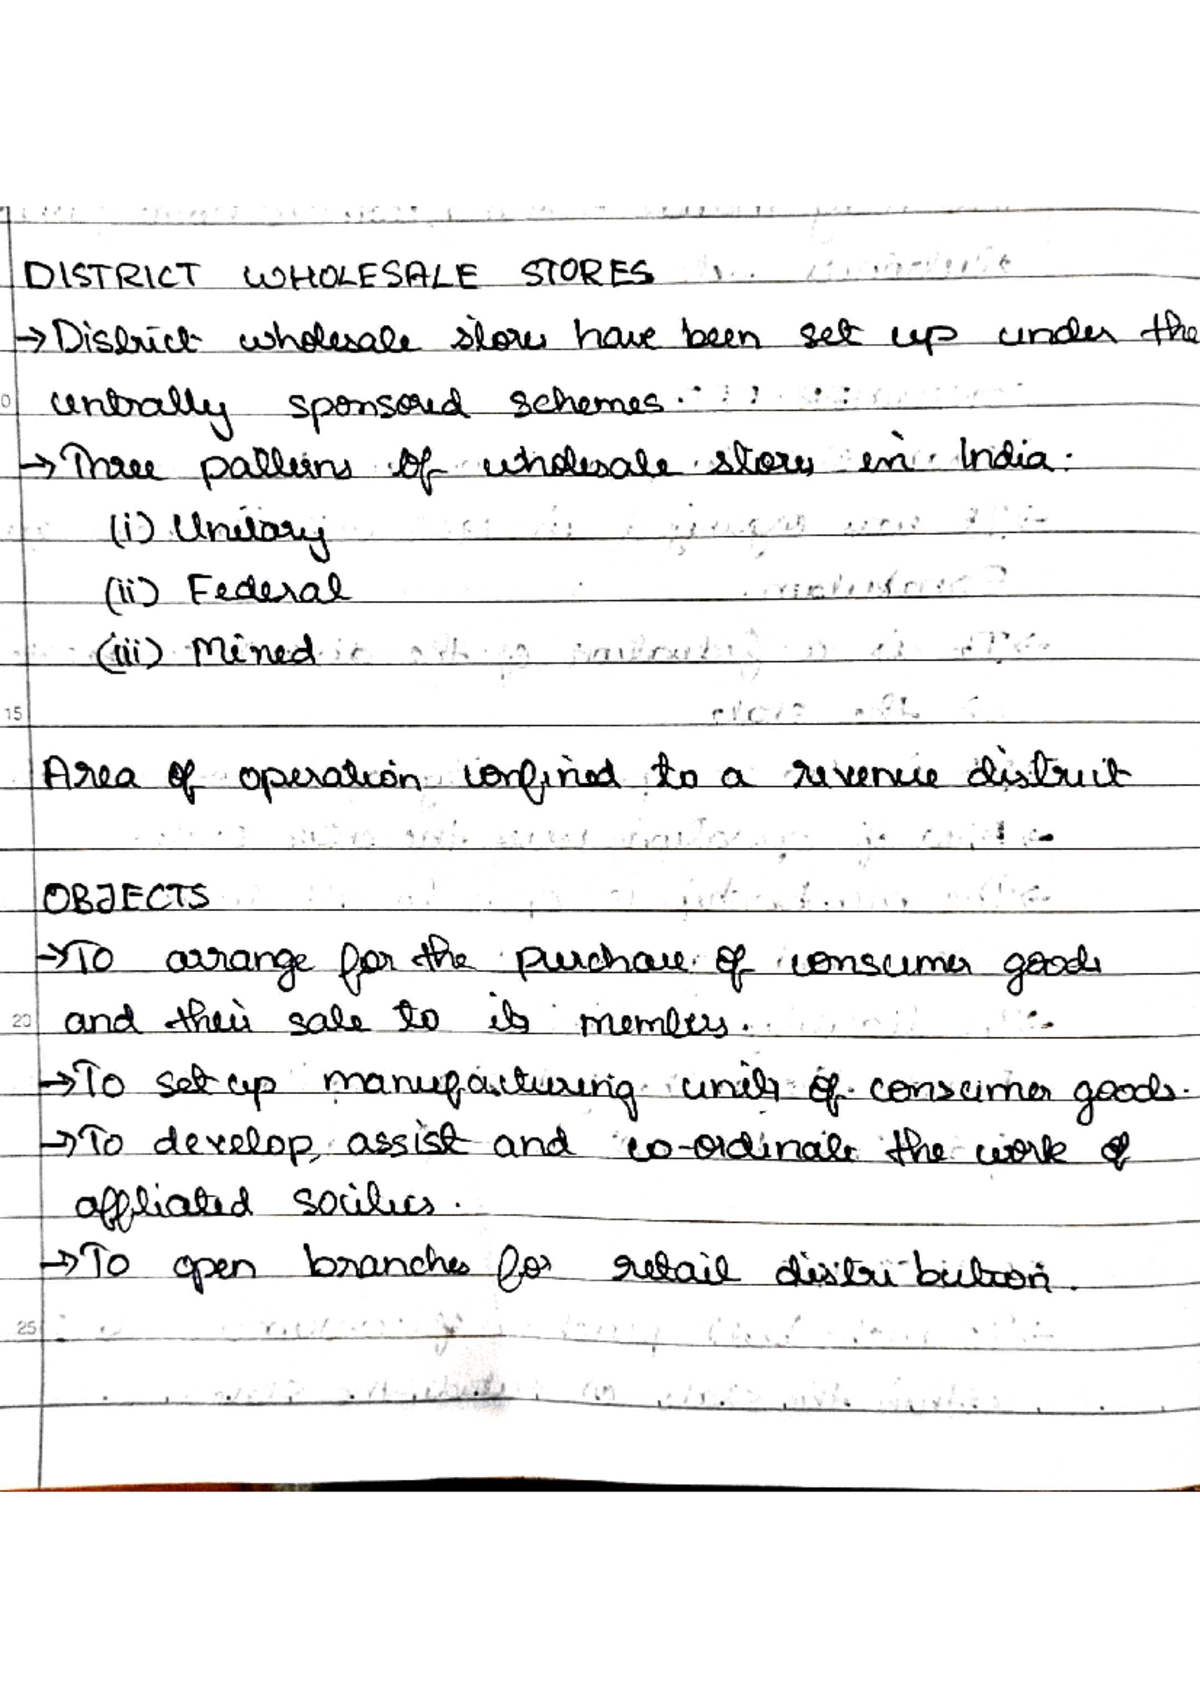 DISTRICT WHOLESALE STORES
→ District wholesale stores have been set up under the
centrally sponsored schemes.
→ Three patterns of wholesale stores in India.
(i) Unitary
(ii) Federal
(iii) Mined
15
Area of operation confined to a revenue district
OBJECTS
→ To arrange for the purchase of consumer goods
20 and their sale to its members.
→ To set up manufacturing units of consumer goods.
→ To develop, assist and co-ordinate the work of
affliated socities.
→ To open branches for retail distribution.
25